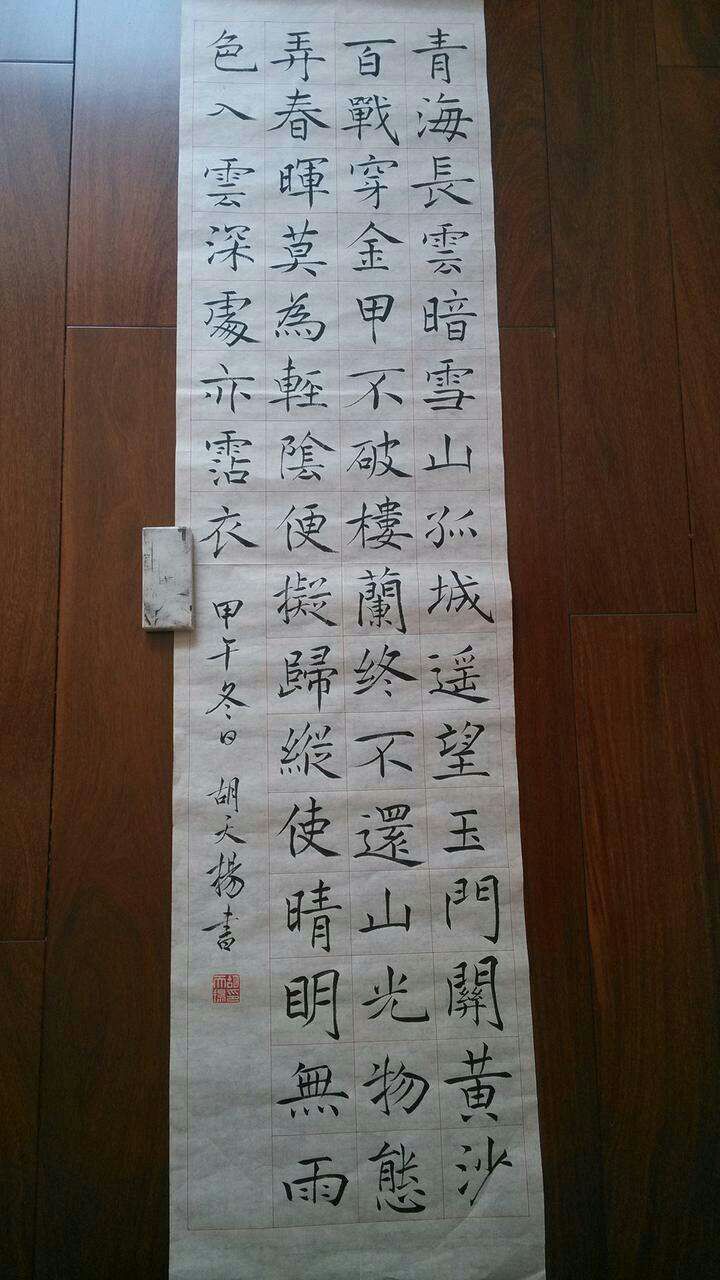 青海長雲暗雪山孤城遥望玉門關黄沙
百戰穿金甲不破樓蘭终不還山光物態
弄春暉莫為輕陰便擬歸縱使晴明無雨
色入雲深處亦霑衣
甲午冬日胡天揚書